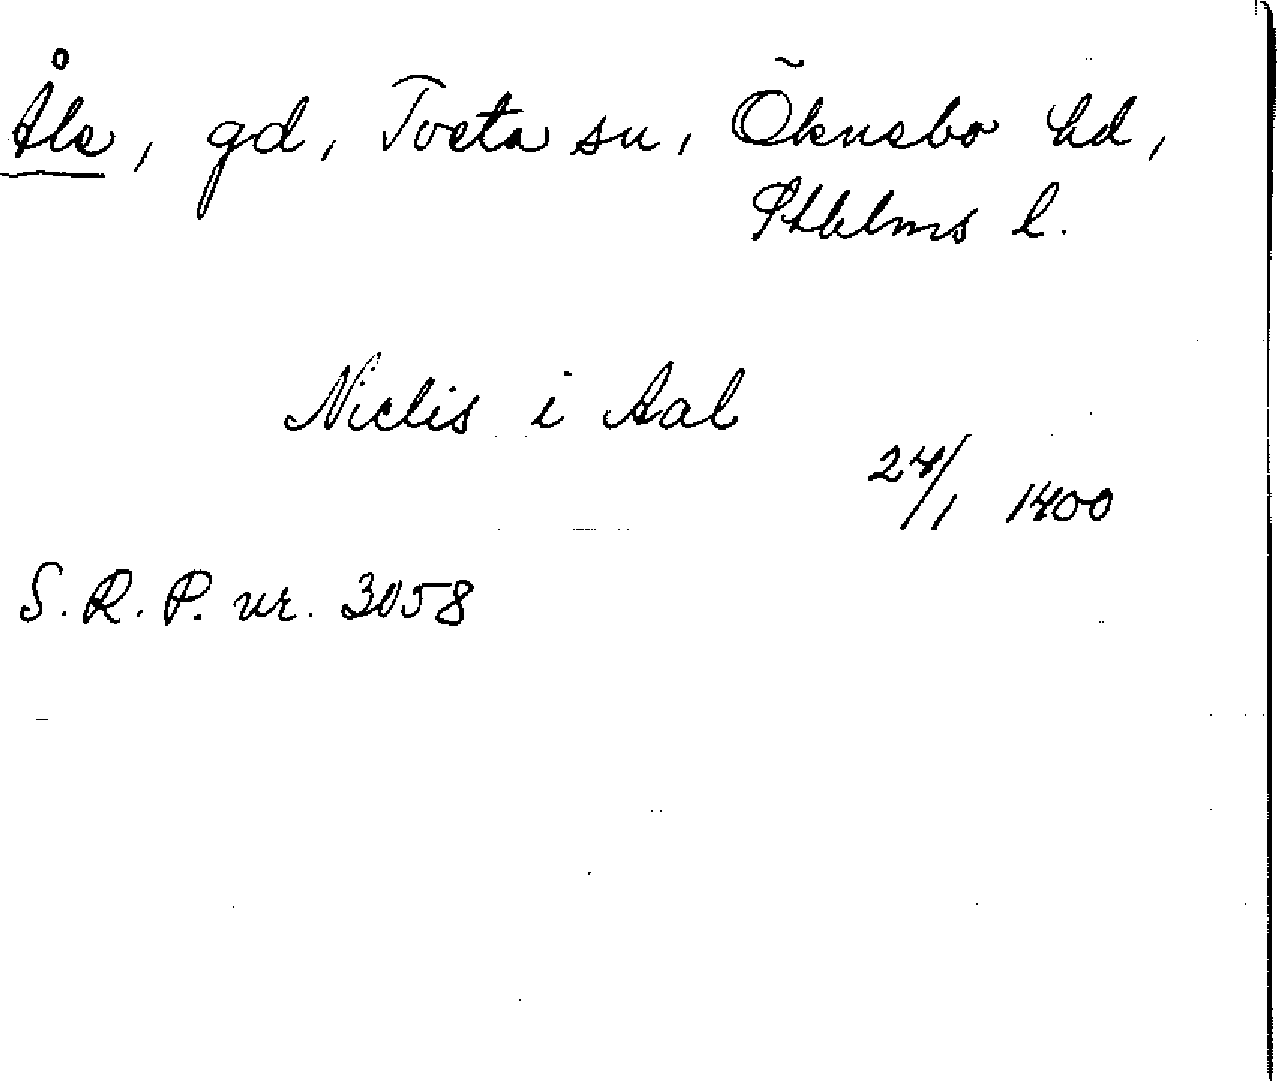 Åle, gd, Tveta sn, Öknebo hd,
Sthlms l.
Niclis i Aal
24/1 1400
S. R. P. nr. 3058